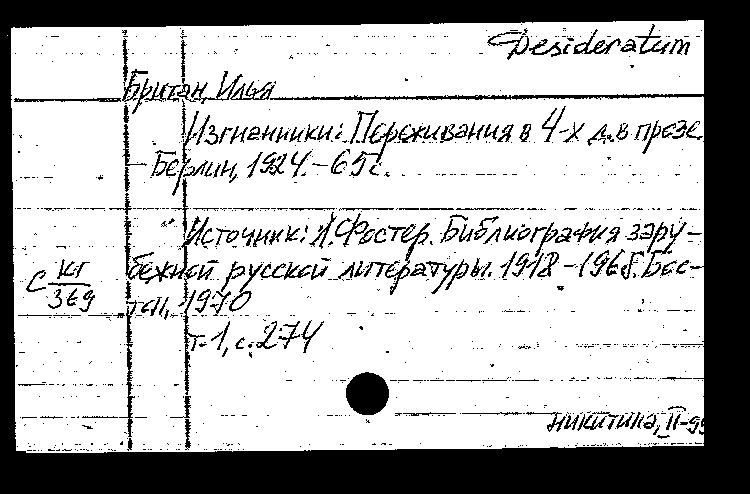 Desideratum
Британ, Илья
Изгнанники: Переживания в 4-х д. в прозе.
– Берлин, 1924. – 65 с.
Источник: Л. Фостер. Библиография зару-
бежной русской литературы. 1918–1968. Бос-
тон, 1970
т. 1, с. 274
С кг
369
Никитина, II-99